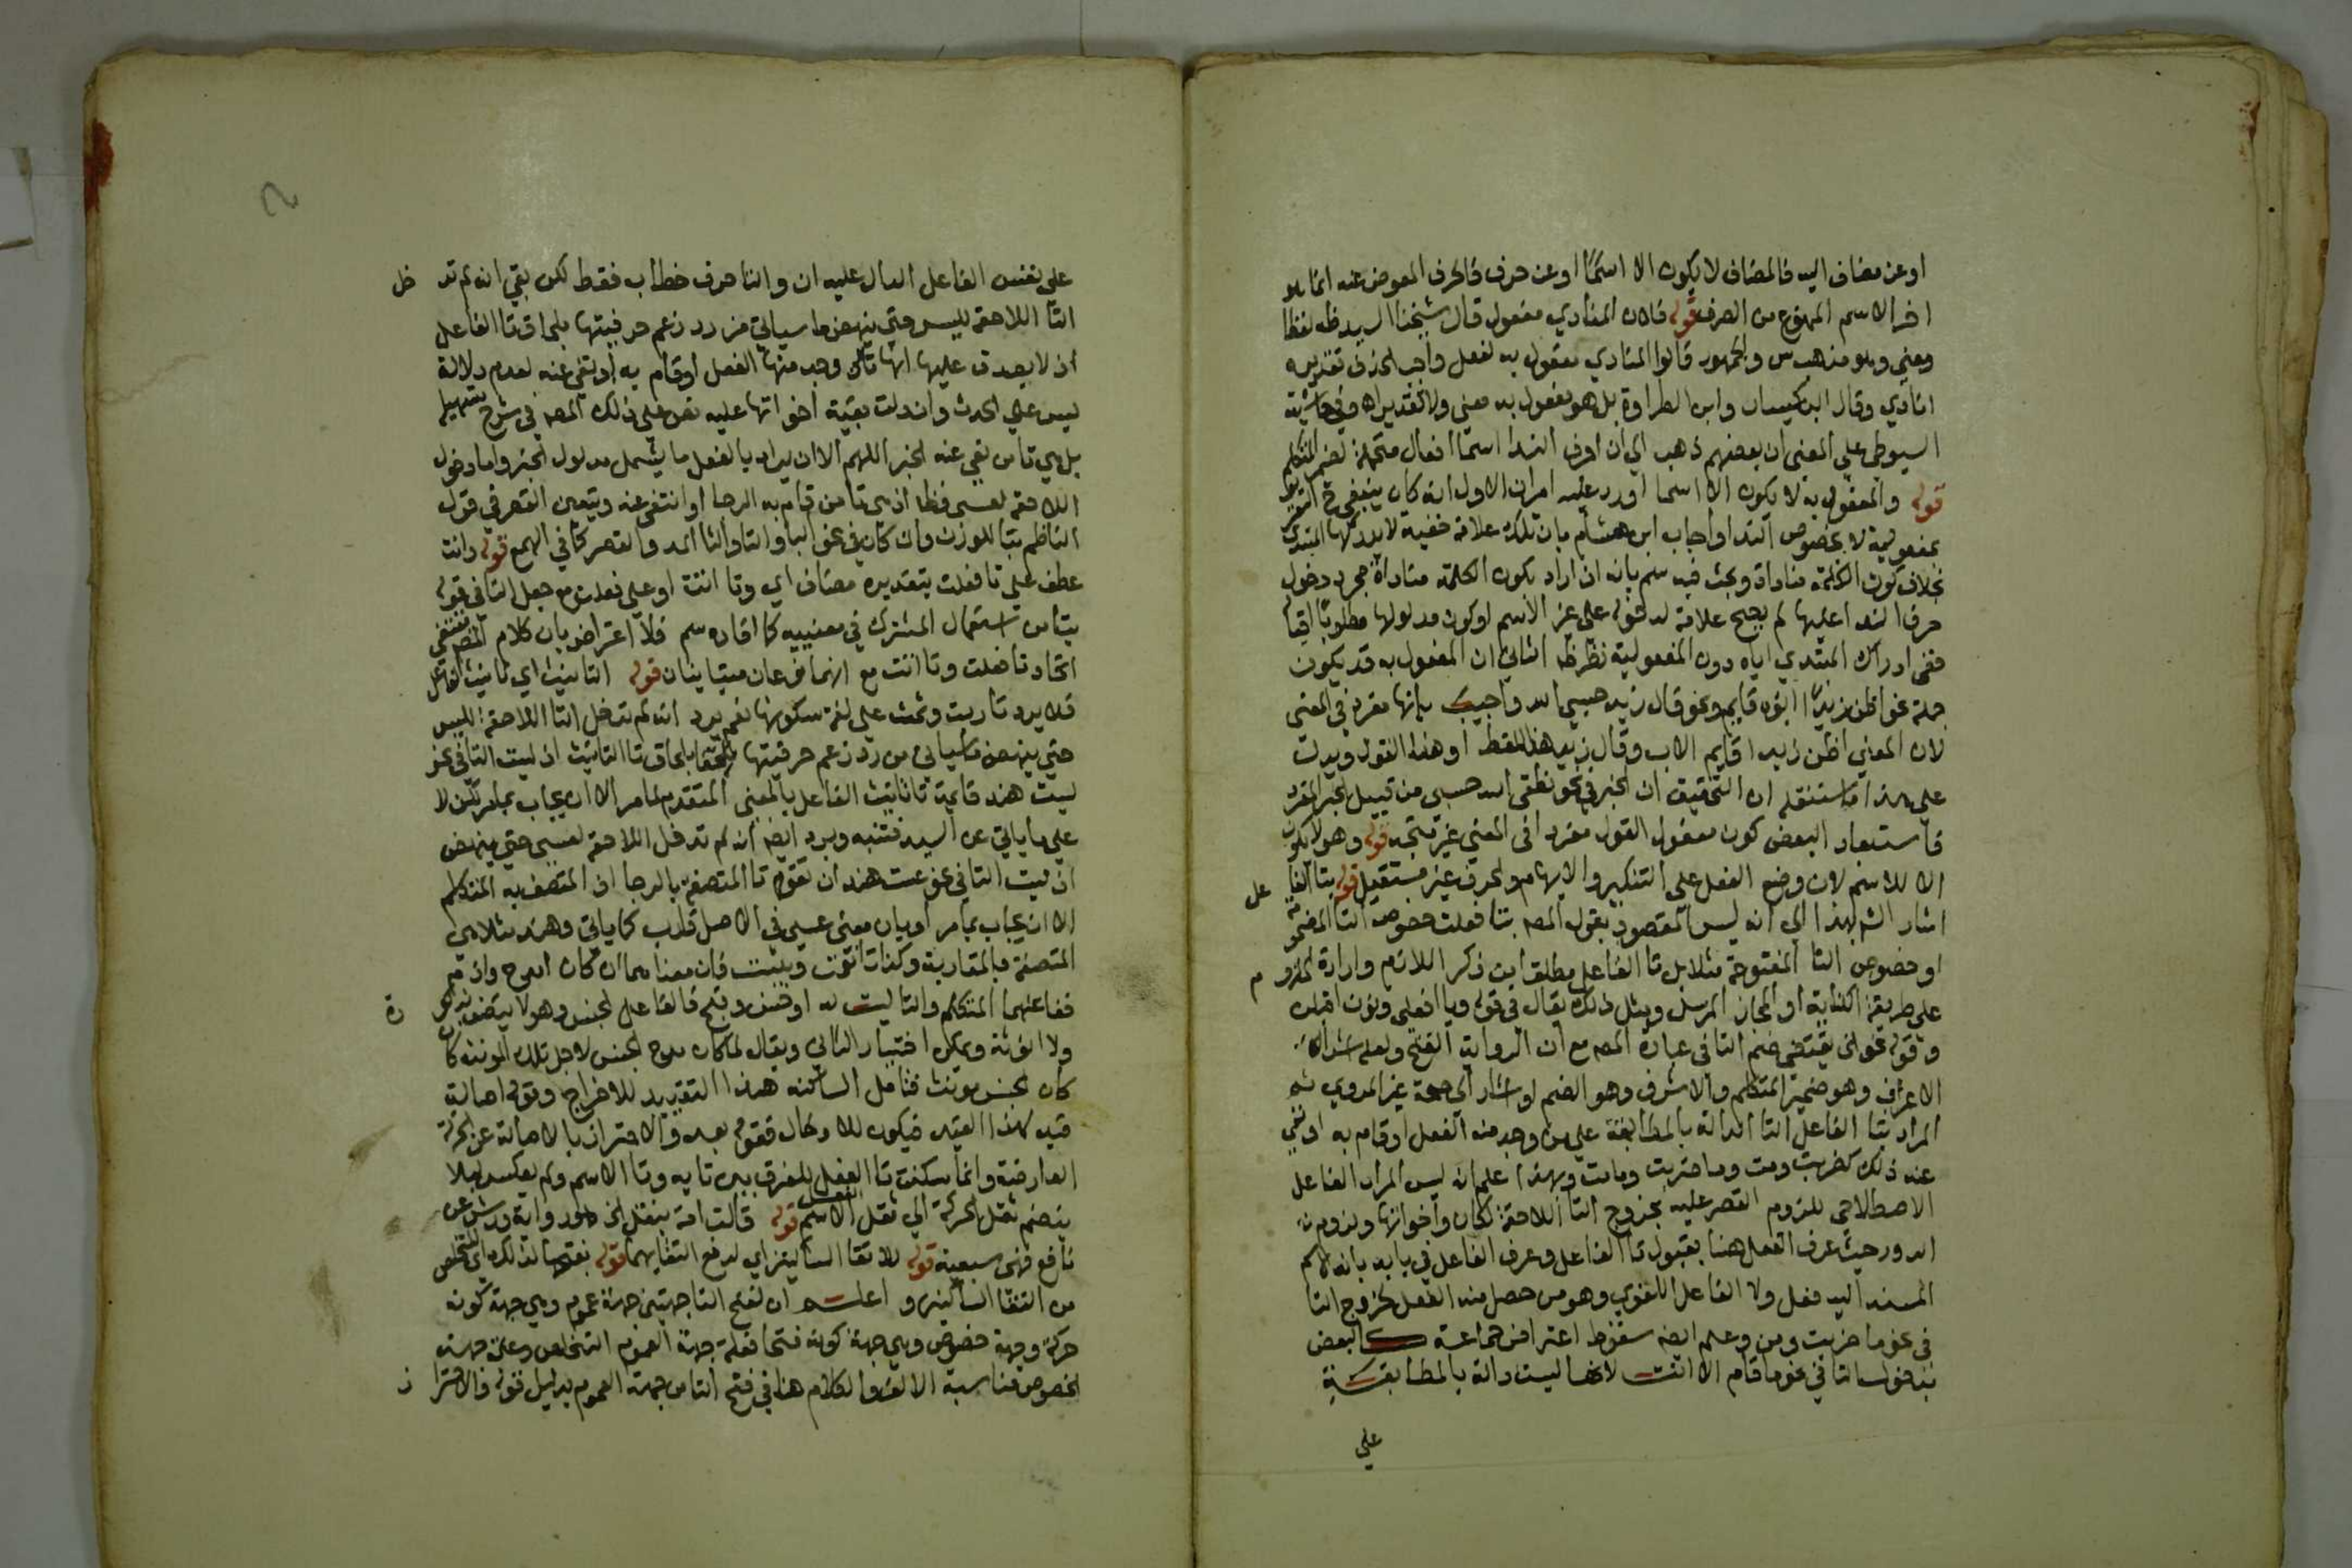 او عن مضاف اليه فالمضاف لا يكون الا اسمًا او عن حرف فالحرف المعوض عنه انما هو
اخر الاسم الممنوع من الصرف قوله فلان المنادي مفعول قال شيخنا السيد ظ لفظا
ومعنى وهو مذهب س والجمهور قالوا المنادي مفعول به لفعل واجب الحذف تقديره
انادي وقال ابن كيسان وابن الطراوة بل هو مفعول به معنى ولا تقدير اه وفي حاشية
السيوطي على المغنى ان بعضهم ذهب الي ان احرف الندا اسما افعال متحملة لضمير المتكلم
قوله والمفعول به لا يكون الا اسما اورد عليه امران الاول انه كان ينبغي ح التعبير
بمفعولية لا بخصوص الندا واجاب ابن هشام بان تلك علامة خفية لا يدركها المبتدي
بخلاف كون الكلمة مناداة وبحث فيه سم بانه ان اراد بكون الكلمة مناداة مجرد دخول
حرف الندا عليها لم يصح علامة لدخوله على غير الاسم او كون مدلولها مطلوبًا اقباله
ففي ادراك المبتدي اياه دون المفعولية نظر ظ الثاني ان المفعول به قد يكون
جملة نحو اظن زيدًا ابوه قايم ونحو قال زيد حسبي الله واجيب بانها مفرد في المعنى
لان المعني اظن زيدا قايم الاب وقال زيد هذا اللفظ او هذا القول ويدل
على هذا ما سننقله ان التحقيق ان الخبر في نحو نطقي الله حسبي من قبيل الخبر المفرد
فاستبعاد البعض كون مفعول القول مفردا في المعنى غير متجه قوله وهو لا يكون
الا للاسم لان وضع الفعل على التنكير والابهام والحرف غير مستقيل قوله بتا الفا عل
اشار الش بهذا الي انه ليس المقصود بقول المص بتا فعلت خصوص التا المضمومة
او خصوص التا المفتوحة مثلا بل تا الفاعل مطلقا من ذكر اللازم وارادة الملزو م
على طريقة الكناية او المجاز المرسل ومثل ذلك يقال في قوله ويا افعلي ونون اقبلن
وقوله نحو الخ يقتضي ضم التا في عبارة المص مع ان الرواية الفتح ولعله اشار الي
الاعراف وهو ضمير المتكلم والاشرف وهو الضم او اشار الي صحة غير المروي ثم
المراد بتا الفاعل التا الدالة بالمطابقة على من وجد منه الفعل او قام به او نفي
عنه ذلك كضربت ومت وما ضربت وما مت وبهذا علم انه ليس المراد الفاعل
الاصطلاحي للزوم القصر عليه بخروج التا اللاحقة لكان واخواتها ولزوم
الدور حيث عرف الفعل هنا بقبول تا الفاعل وعرف الفاعل في بابه بانه الاسم
المسند اليه فعل ولا الفاعل اللغوي وهو من حصل منه الفعل لخروج التا
في نحو ما ضربت ومن وعلم ايضه سقوط اعتراض جماعة كالبعض
بدخول التا في نحو ما قام الا انت لانها ليست دالة بالمطابقة
علي
على نفس الفاعل الدال عليه ان والتا حرف خطاب فقط لكن بقي انه لم تد خل
التا اللاحقة لليس حتى ينهض ما سياتي من رد زعم حرفيتها بلحاق تا الفاعل
اذ لا يصدق عليها انها تا من وجد منه الفعل او قام به او نفي عنه لعدم دلالة
ليس علي الحدث وان دلت بقية اخواتها عليه نص على ذلك المص في شرح تسهيله
بل هي تا من نفي عنه الخبر اللهم الا ان يراد بالفعل ما يشمل مدلول الخبر واما دخول
اللاحقة لعسى فظا اذ هي تا من قام به الرجا او انتفى عنه ويتعين القصر في قول
الناظم بتا للوزن وان كان في نحو البا والتا والثا المد والقصر كما في الهمع قوله وانت
عطف على تا فعلت بتقدير مضاف اي وتا اتت او على فعلت مع جعل التا في قوله
بتا من استعمال المشترك في معنييه كما افاده سم فلا اعتراض بان كلام المص يقتضي
اتحاد تا فعلت وتا اتت مع انهما فرعان متباينان قوله التانيث اي تانيث الفاعل
فلا يرد تا ربت وثمت على لغة سكونها نعم يرد انه لم تدخل التا اللاحقة لليس
حتى ينهض ما سياتي من رد زعم حرفيتها بلحاق تا التانيث اذ ليست التا في نحو
ليست هند قايمة تا تانيث الفاعل بالمعنى المتقدم لما مر الا ان يجاب بما مر لكن لا
على ما ياتي عن السيد فتنبه ويرد ايضه انه لم تدخل اللاحقة لعسى حتى ينهض
اذ ليست التا في نحو عست هند ان تقوم تا المتصفة بالرجا اذ المتصف به المتكلم
الا ان يجاب بما مر او بان معنى عسى في الاصل قارب كما ياتي وهند مثلا هي
المتصفة بالمقاربة وكذا تا نعمت وبئست فان معناهما ان كان امدح واذم
ففاعلهما المتكلم والتا ليست له او حسن وقبح فالفاعل الجنس وهو لا يتصف بذكو رة
ولا انوثة ويمكن اختيار الثاني ويقال لما كان مدح الجنس لاجل تلك المونثة كان
كان الجنس مونث فتامل الساكنه هذا التقييد للاخراج وقوله اصالة
قيد لهذا القيد فيكون للادخال فقوله بعد والاحتراز بالاصالة عن الحركة
العارضة وانما سكنت تا الفعل للفرق بين تايه وتا الاسم ولم يعكس ليلا
ينضم ثقل الحركة الي ثقل الفعل قوله قالت امة بنقل الخ هو رواية ورش عن
نافع فهي سبعية قوله لالتقا الساكنين اي لدفع التقايهما قوله بفتحها لذلك اي للتخلص
من التقا الساكنين واعلم ان لفتح التا جهتين جهة عموم وهي جهة كونه
حركة وجهة خصوص وهي جهة كونه فتحا فعلة جهة العموم التخلص وعلة جهة
الخصوص مناسبة الالف والكلام هنا في فتح التا من جهة العموم بدليل قوله والاحترا ز